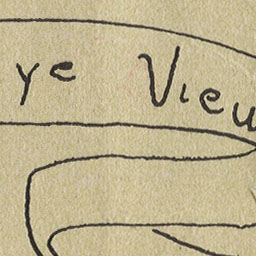 ye View